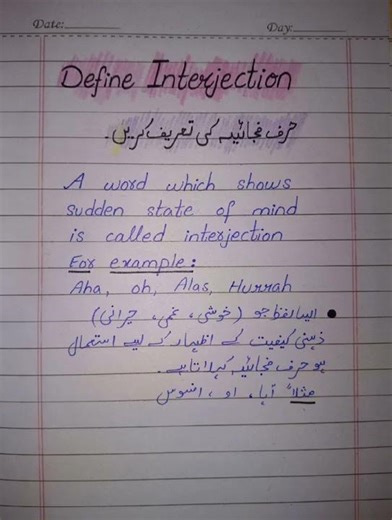 Date: Day:
Define Interjection
حرف فجائیہ کی تعریف کریں۔
A word which shows
sudden state of mind
is called interjection
For example:
Aha, oh, Alas, Hurrah
ایسا لفظ جو (خوشی، غمی، حیرانی)
ذہنی کیفیت کے اظہار کے لیے استعمال
ہو حرف فجائیہ کہلاتا ہے۔
مثلاً آہا، او، افسوس